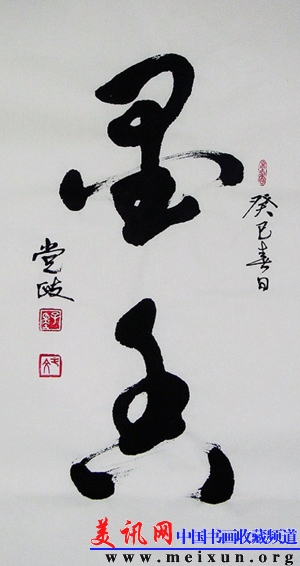 癸巳春日
墨香
党政
美讯网 中国书画收藏频道
www.meixun.org